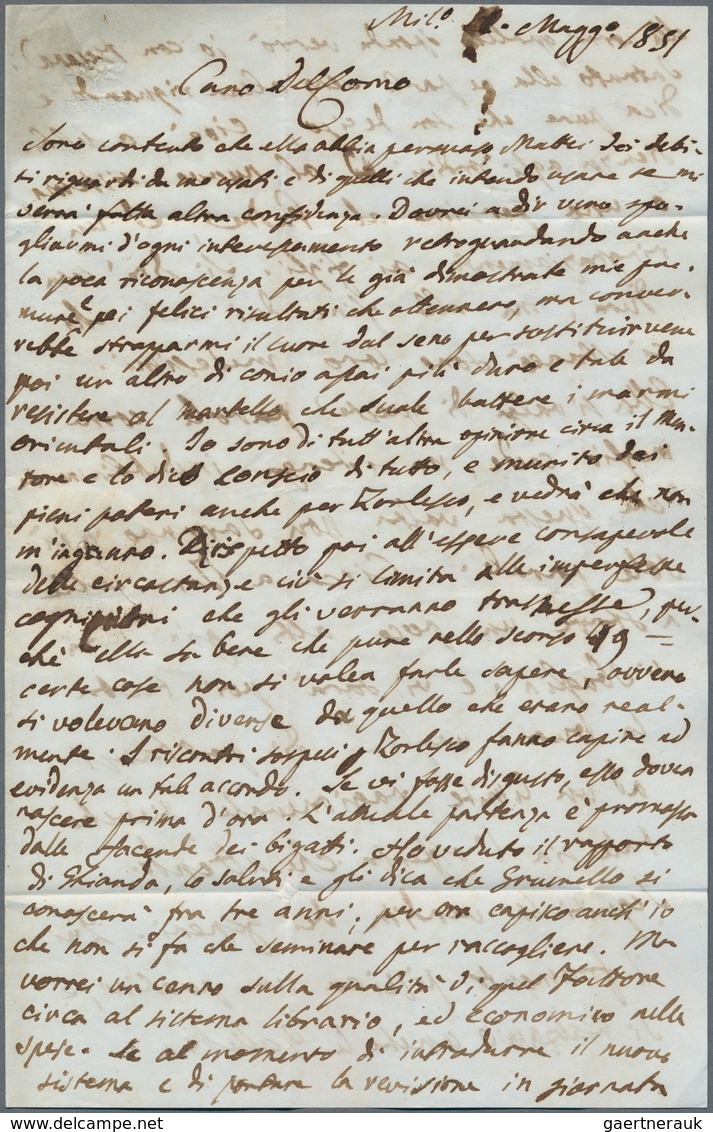 Mil.o Maggo 1851
Caro Delcorno
Sono contento che ella abbia persuaso Mattei dei debi-
ti riguardi da me usati e di quelli che intendo usare se mi
verrà fatta altra confidenza. Dovrei a dir vero spo-
gliarmi d'ogni interessamento retroguardando anche
la poca riconoscenza per le già dimostrate mie pre-
mure e pei felici risultati che ottennero, ma conver-
rebbe strapparmi il cuore dal seno per sostituirvene
poi un altro di conio assai più duro e tale da
resistere al martello che suole battere i marmi
orientali. Io sono di tutt'altra opinione circa il Mon-
tore e lo dico conscio di tutto, e munito dei
pieni poteri anche per Zorlesco, e vedrà che non
m'inganno. Rispetto poi all'essere consapevole
delle circostanze ciò si limita alle imperfette
cognizioni che gli verranno trasmesse, per-
chè ella sa bene che pure nello scorso 49 =
certe cose non si volea farle sapere, ovvero
si volevano diverse da quello che erano real-
mente. I riscontri sospesi p Zorlesco fanno capire ad
evidenza un tale accordo. Se vi fosse disgusto, esso dovea
nascere prima d'ora. L'attuale partenza è promossa
dalle faccende dei bigatti. Ho veduto il rapporto
di Ghianda, lo saluti e gli dica che Grumello si
conoscerà fra tre anni; per ora capisco anch'io
che non si fa che seminare per raccogliere. Ma
vorrei un cenno sulla qualità di quel Fattore
circa al sistema librario, ed economico nelle
spese. Se al momento di introdurre il nuovo
sistema e di portare la revisione in giornata
gaertnerauk